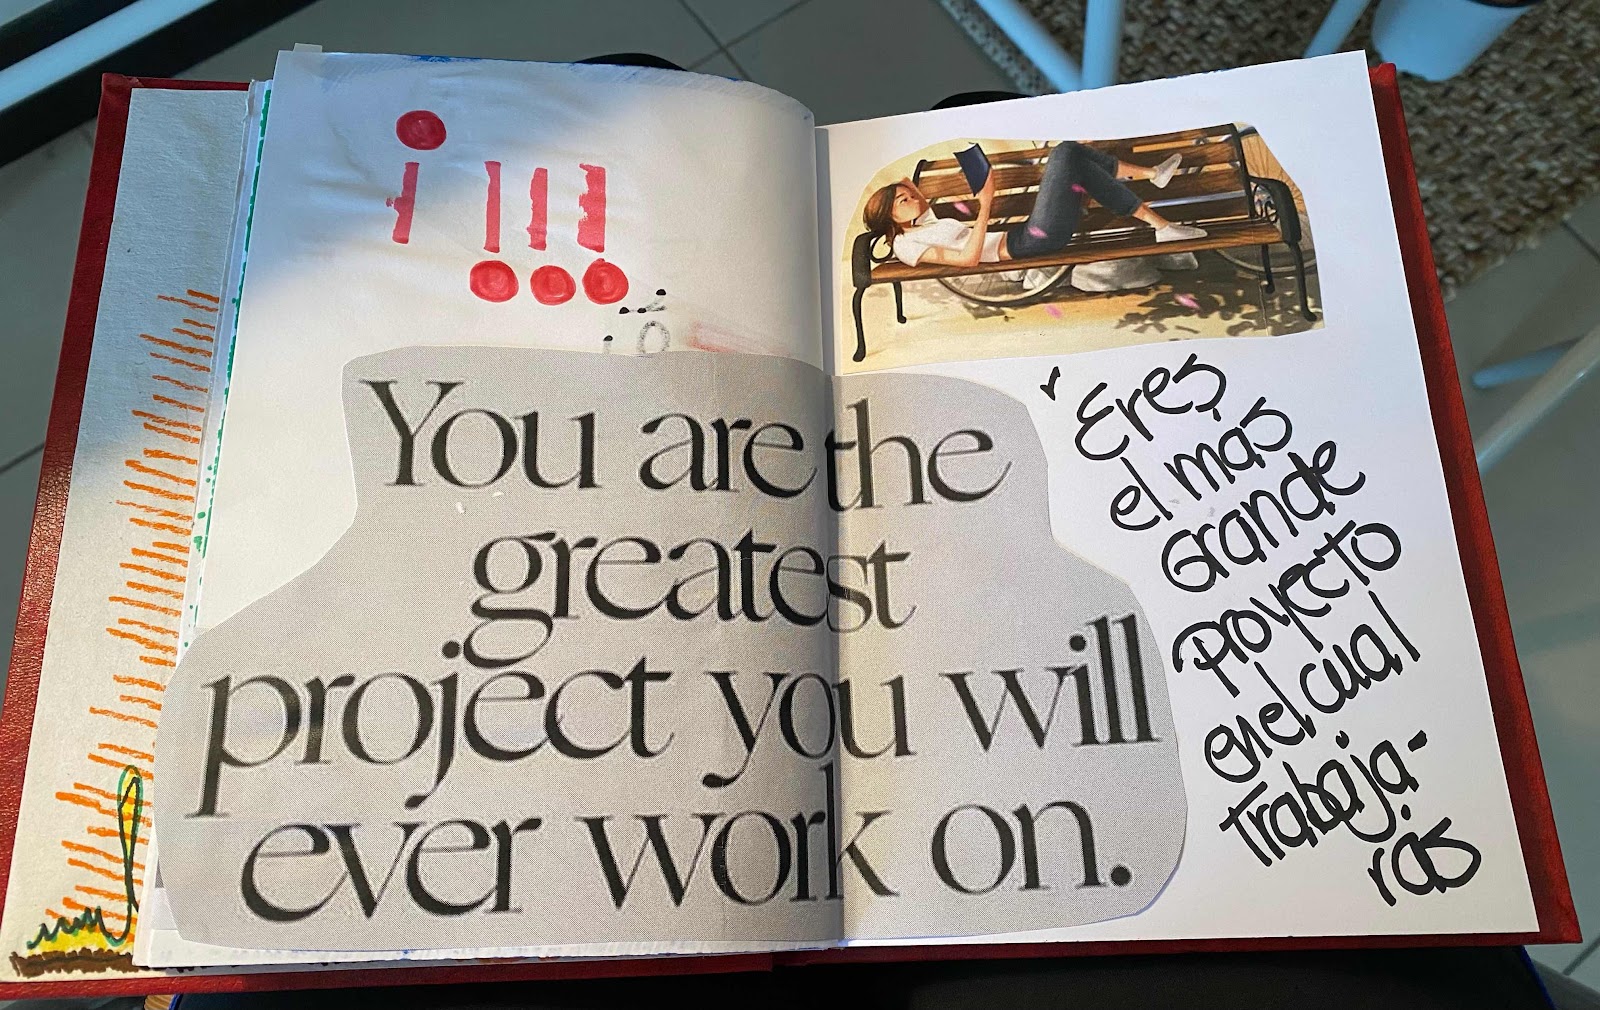 ¡!!!
You are the
greatest
project you will
ever work on.
Eres
el mas
Grande
Proyecto
en el cual
Trabaja-
ras